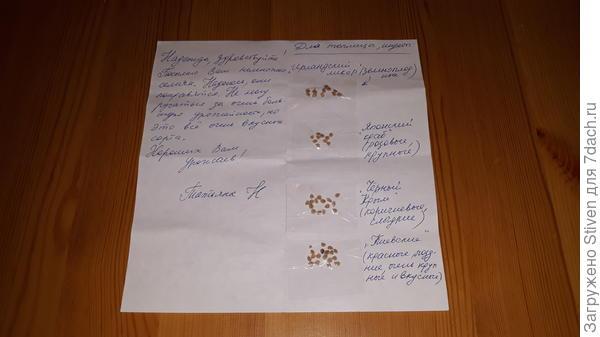 Надежда, здравствуйте!
Высылаю Вам немножко
семян. Надеюсь, они
понравятся. Не могу
ручаться за очень боль-
шую урожайность, но
это всё очень вкусные
сорта.
Хороших Вам
урожаев!
Татьяна Н
Для теплицы, индет
"Ирландский ликёр" (зеленоплод)
ные
"Японский
краб"
(розовые,
крупные)
"Чёрный
Крым"
(коричневые,
сладкие)
"Киевские"
(красные позд-
ние очень круп
ные и вкусные)
Загружено Stiven для 7dach.ru